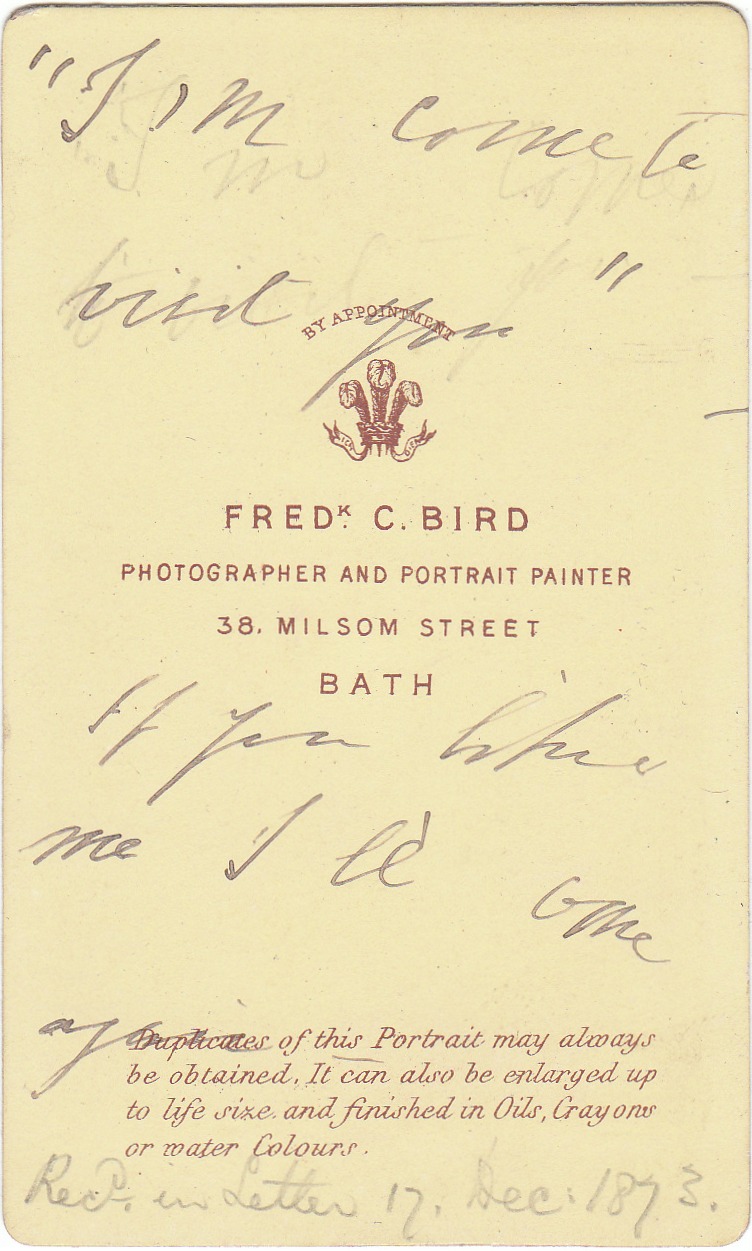 "I'm come to
visit you"
BY APPOINTMENT
ICH DIEN
FREDK. C. BIRD
PHOTOGRAPHER AND PORTRAIT PAINTER
38, MILSOM STREET
BATH
If you like
me I'll
come
again
Duplicates of this Portrait may always
be obtained. It can also be enlarged up
to life size and finished in Oils, Crayons
or water Colours.
Recd. in Letter 17. Dec: 1873.